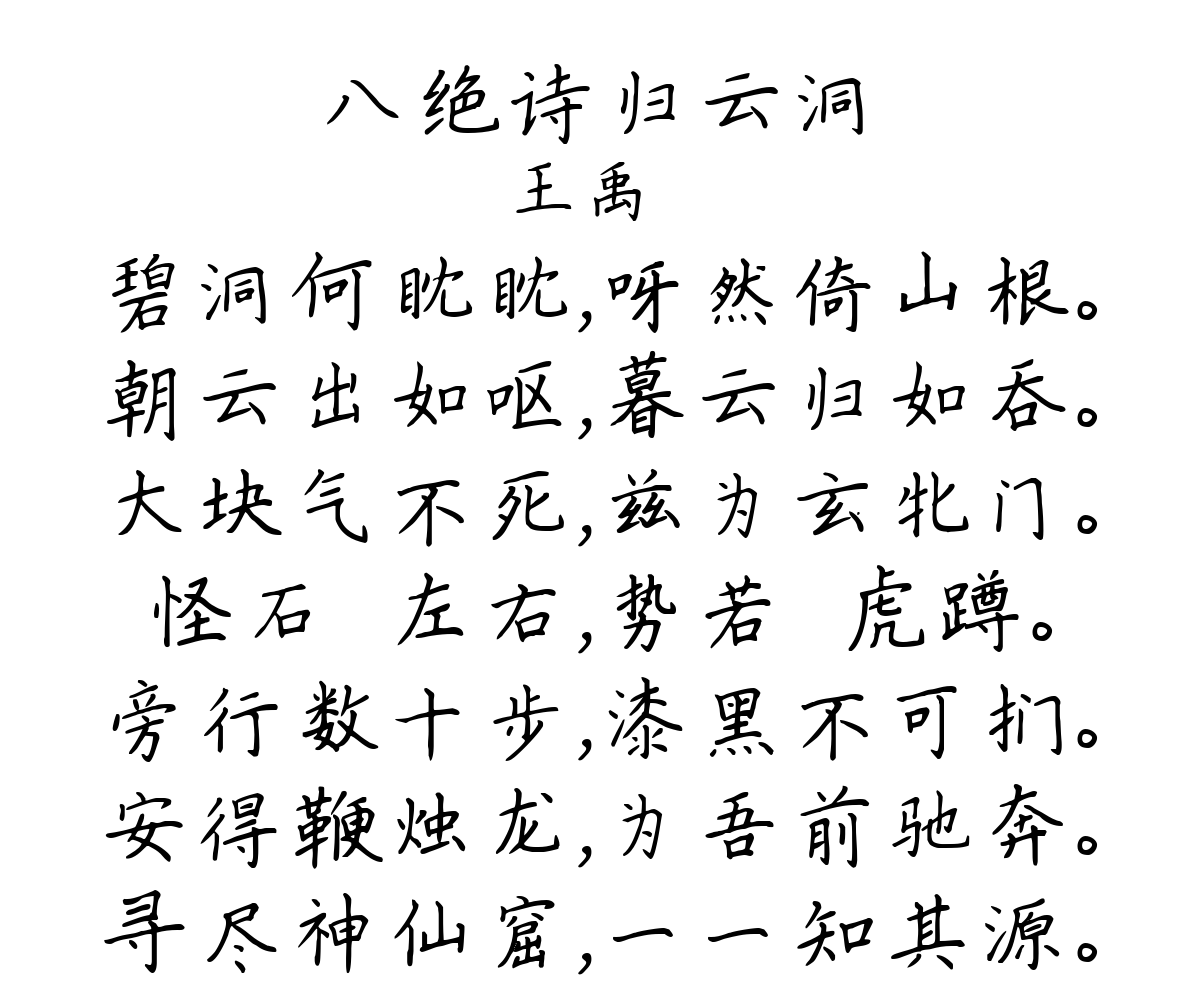 八绝诗归云洞
王禹
碧洞何眈眈,呀然倚山根。
朝云出如呕,暮云归如吞。
大块气不死,兹为玄牝门。
怪石 左右,势若 虎蹲。
旁行数十步,漆黑不可扪。
安得鞭烛龙,为吾前驰奔。
寻尽神仙窟,一一知其源。